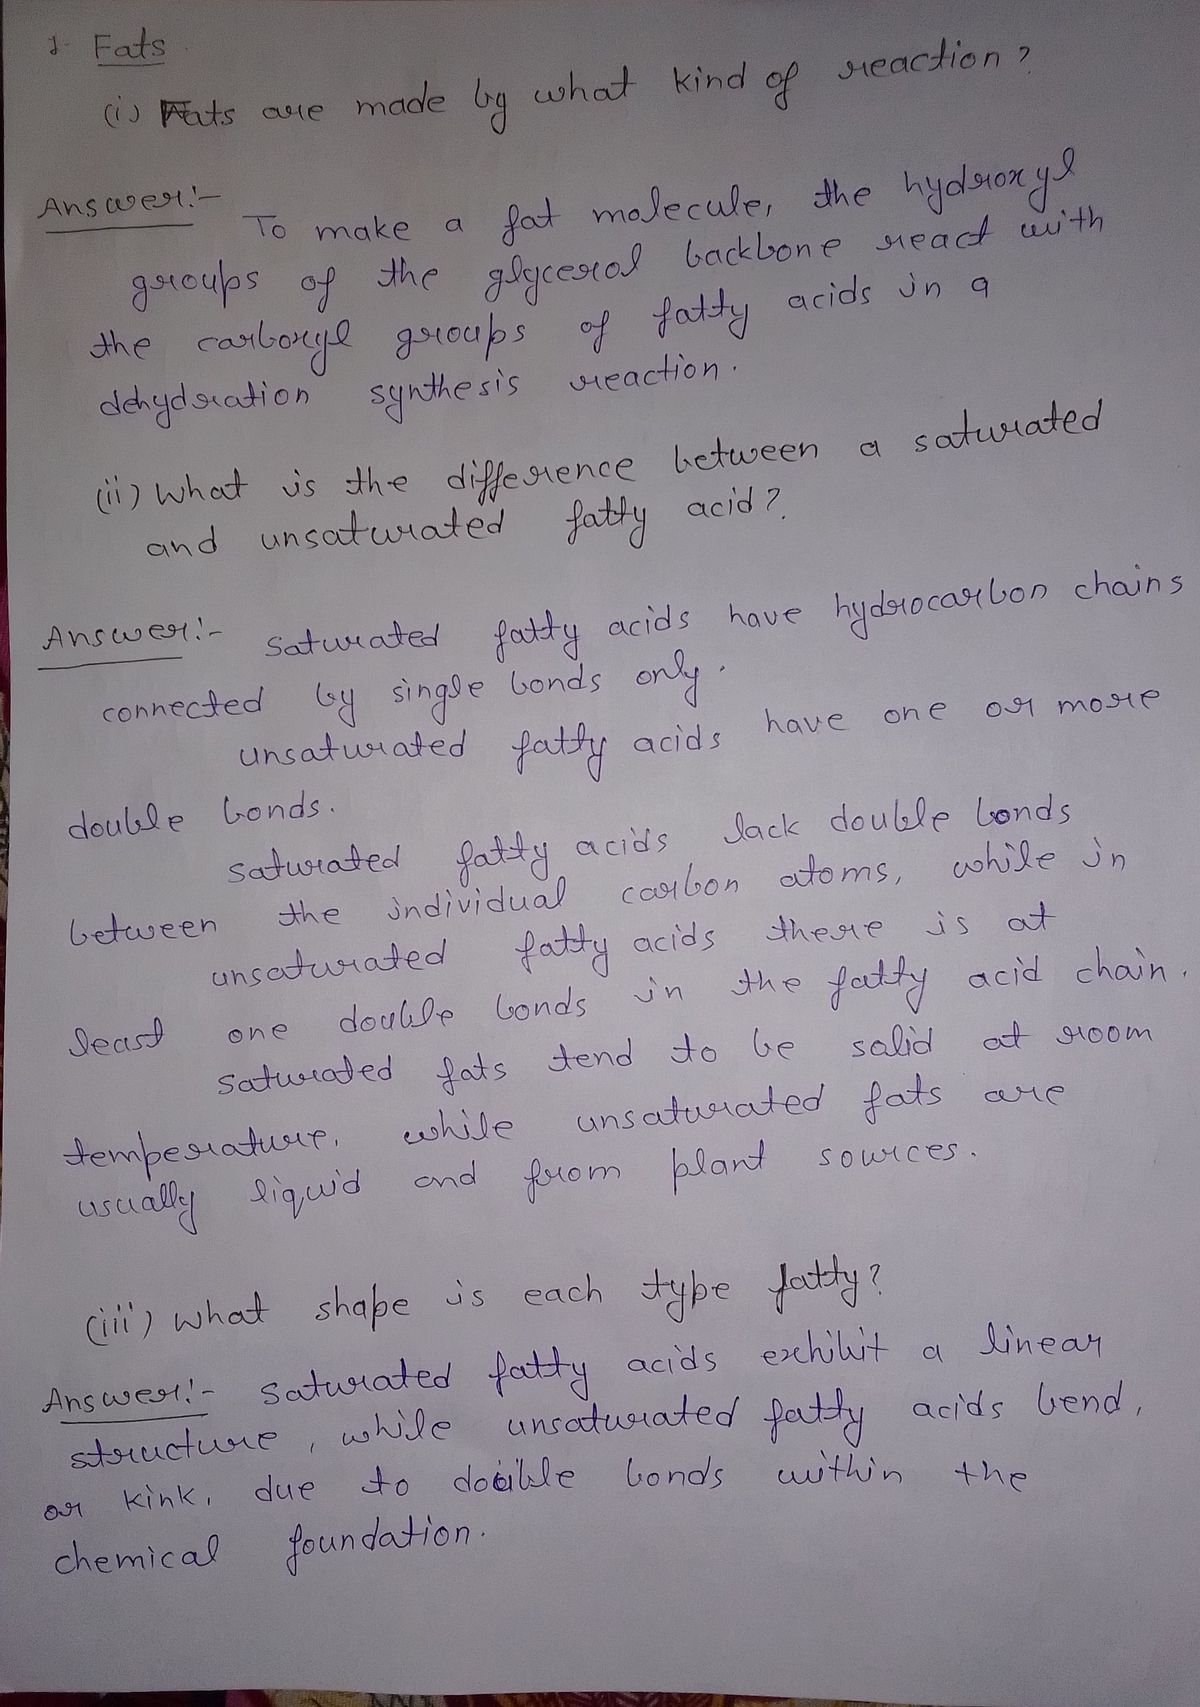 1. Fats.
(i) Fats are made by what kind of reaction?
Answer:-
To make a fat molecule, the hydroxyl
groups of the glycerol backbone react with
the carboxyl groups of fatty acids in a
dehydration synthesis reaction.
(ii) What is the difference between a saturated
and unsaturated fatty acid?
Answer:- Saturated fatty acids have hydrocarbon chains
connected by single bonds only.
unsaturated fatty acids have one or more
double bonds.
saturated fatty acids lack double bonds
between the individual carbon atoms, while in
unsaturated fatty acids there is at
least one double bonds in the fatty acid chain.
saturated fats tend to be solid at room
temperature, while unsaturated fats are
usually liquid and from plant sources.
(iii) What shape is each type fatty?
Answer:- Saturated fatty acids exhibit a linear
structure, while unsaturated fatty acids bend,
or kink, due to double bonds within the
chemical foundation.